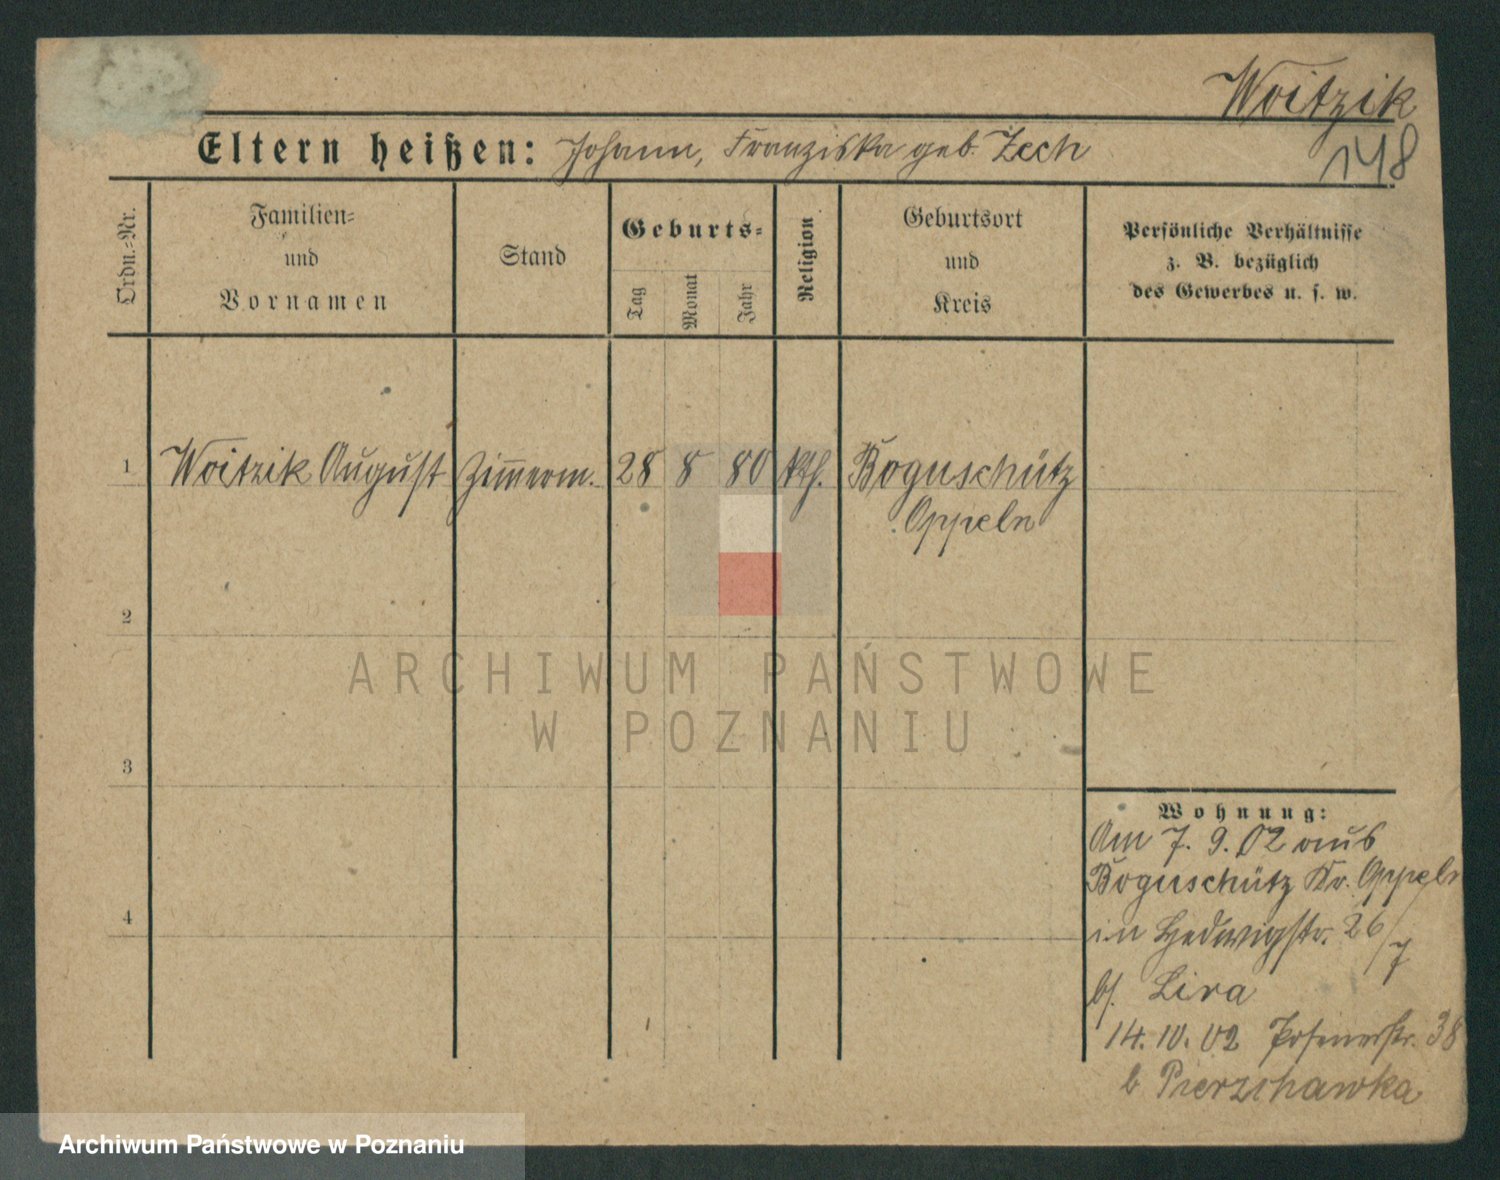 Woitzik
148
Eltern heißen: Johann, Franziska geb. Zech
Ordn.=Nr.
Familien=
und
Vornamen
Stand
Geburts=
Tag
Monat
Jahr
Religion
Geburtsort
und
Kreis
Persönliche Verhältnisse
z. B. bezüglich
des Gewerbes u. s. w.
1 Woitzik August Zim̅erm. 28 8 80 kth. Boguschütz
Oppeln
2
3
4
Wohnung:
Am 7. 9. 02 aus
Boguschütz Kr. Oppeln
in Hedwigstr. 26/7
bs. Lira
14. 10. 02 Posenerstr. 38
b Pierzchawka
ARCHIWUM PAŃSTWOWE
W POZNANIU
Archiwum Państwowe w Poznaniu